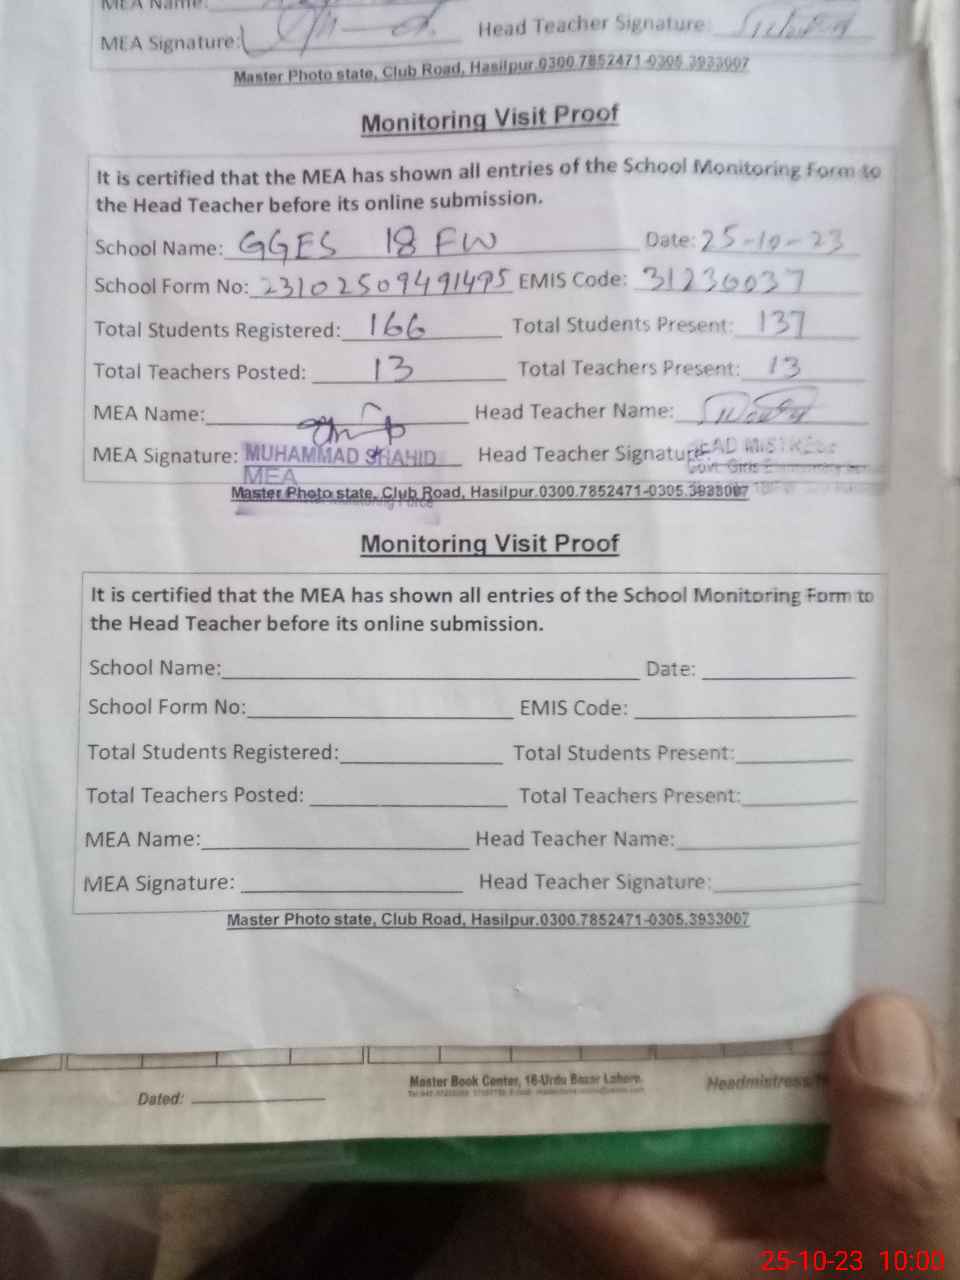 MEA Name:
MEA Signature: Head Teacher Signature:
Master Photo state, Club Road, Hasilpur.0300.7852471-0305.3933007
Monitoring Visit Proof
It is certified that the MEA has shown all entries of the School Monitoring Form to
the Head Teacher before its online submission.
School Name: GGES 18 FW Date: 25-10-23
School Form No: 23102509491495 EMIS Code: 31230037
Total Students Registered: 166 Total Students Present: 137
Total Teachers Posted: 13 Total Teachers Present: 13
MEA Name: Head Teacher Name:
MEA Signature: MUHAMMAD SHAHID Head Teacher Signature: HEAD MISTRESS
MEA Govt. Girls Elementary
Master Photo state, Club Road, Hasilpur.0300.7852471-0305.3933007
Monitoring Force
Monitoring Visit Proof
It is certified that the MEA has shown all entries of the School Monitoring Form to
the Head Teacher before its online submission.
School Name: Date:
School Form No: EMIS Code:
Total Students Registered: Total Students Present:
Total Teachers Posted: Total Teachers Present:
MEA Name: Head Teacher Name:
MEA Signature: Head Teacher Signature:
Master Photo state, Club Road, Hasilpur.0300.7852471-0305.3933007
Master Book Center, 16-Urdu Bazar Lahore.
Dated: Headmistress/
25-10-23 10:00